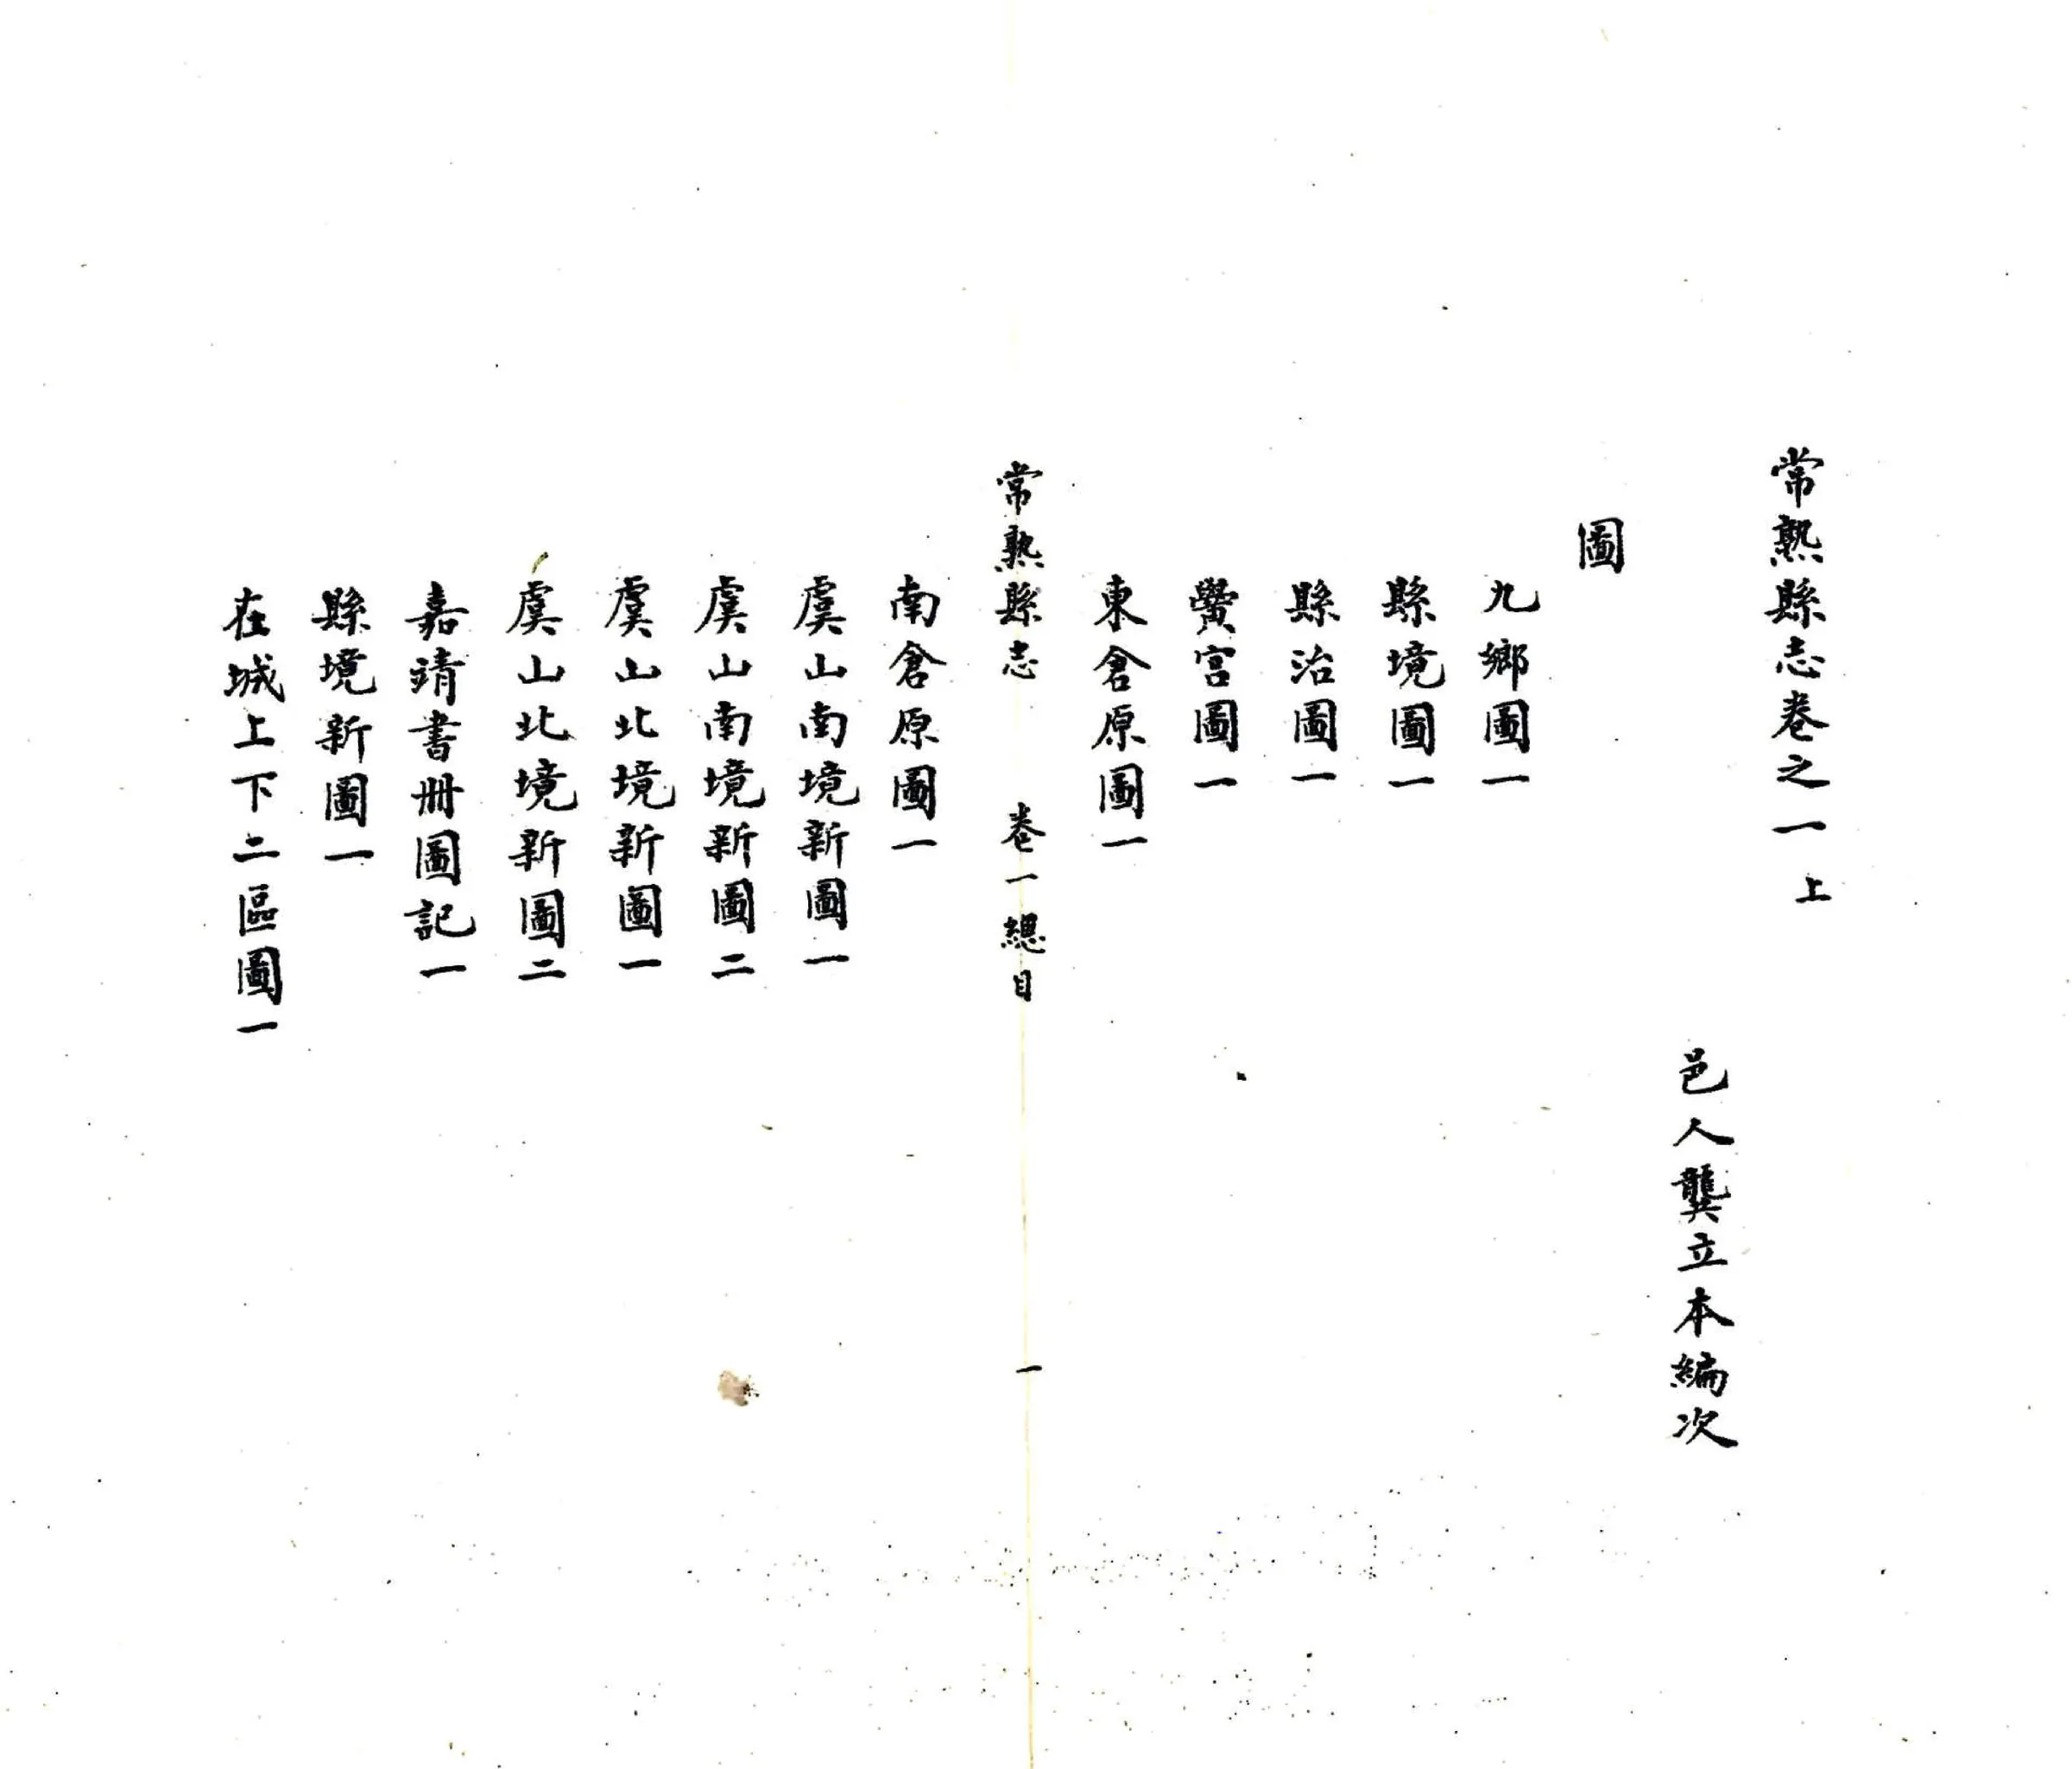 常熟縣志卷之一上
邑人龔立本編次
圖
九鄉圖一
縣境圖一
縣治圖一
黌宮圖一
東倉原圖一
常熟縣志 卷一總目 一
南倉原圖一
虞山南境新圖一
虞山南境新圖二
虞山北境新圖一
虞山北境新圖二
嘉靖書冊圖記一
縣境新圖一
在城上下二區圖一